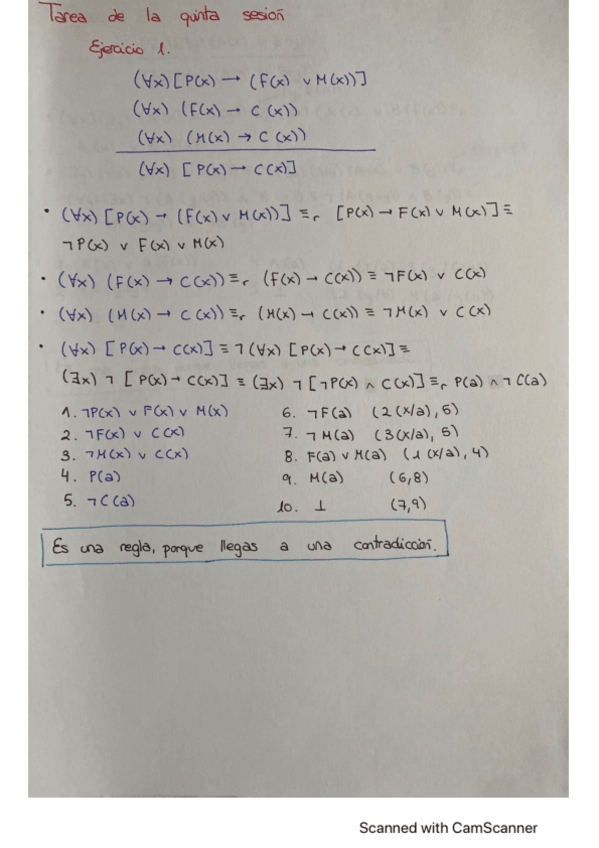 Tarea de la quinta sesión
Ejercicio 1.
(∀x) [P(x) → (F(x) ∨ M(x))]
(∀x) (F(x) → C(x))
(∀x) (M(x) → C(x))
(∀x) [P(x) → C(x)]
• (∀x) [P(x) → (F(x) ∨ M(x))] ≡r [P(x) → F(x) ∨ M(x)] ≡
¬P(x) ∨ F(x) ∨ M(x)
• (∀x) (F(x) → C(x)) ≡r (F(x) → C(x)) ≡ ¬F(x) ∨ C(x)
• (∀x) (M(x) → C(x)) ≡r (M(x) → C(x)) ≡ ¬M(x) ∨ C(x)
• (∀x) [P(x) → C(x)] ≡ ¬(∀x) [P(x) → C(x)] ≡
(∃x) ¬ [P(x) → C(x)] ≡ (∃x) ¬ [¬P(x) ∧ C(x)] ≡r P(a) ∧ ¬C(a)
1. ¬P(x) ∨ F(x) ∨ M(x)
2. ¬F(x) ∨ C(x)
3. ¬M(x) ∨ C(x)
4. P(a)
5. ¬C(a)
6. ¬F(a) (2(x/a), 5)
7. ¬M(a) (3(x/a), 5)
8. F(a) ∨ M(a) (1(x/a), 4)
9. M(a) (6,8)
10. ⊥ (7,9)
Es una regla, porque llegas a una contradicción.
Scanned with CamScanner